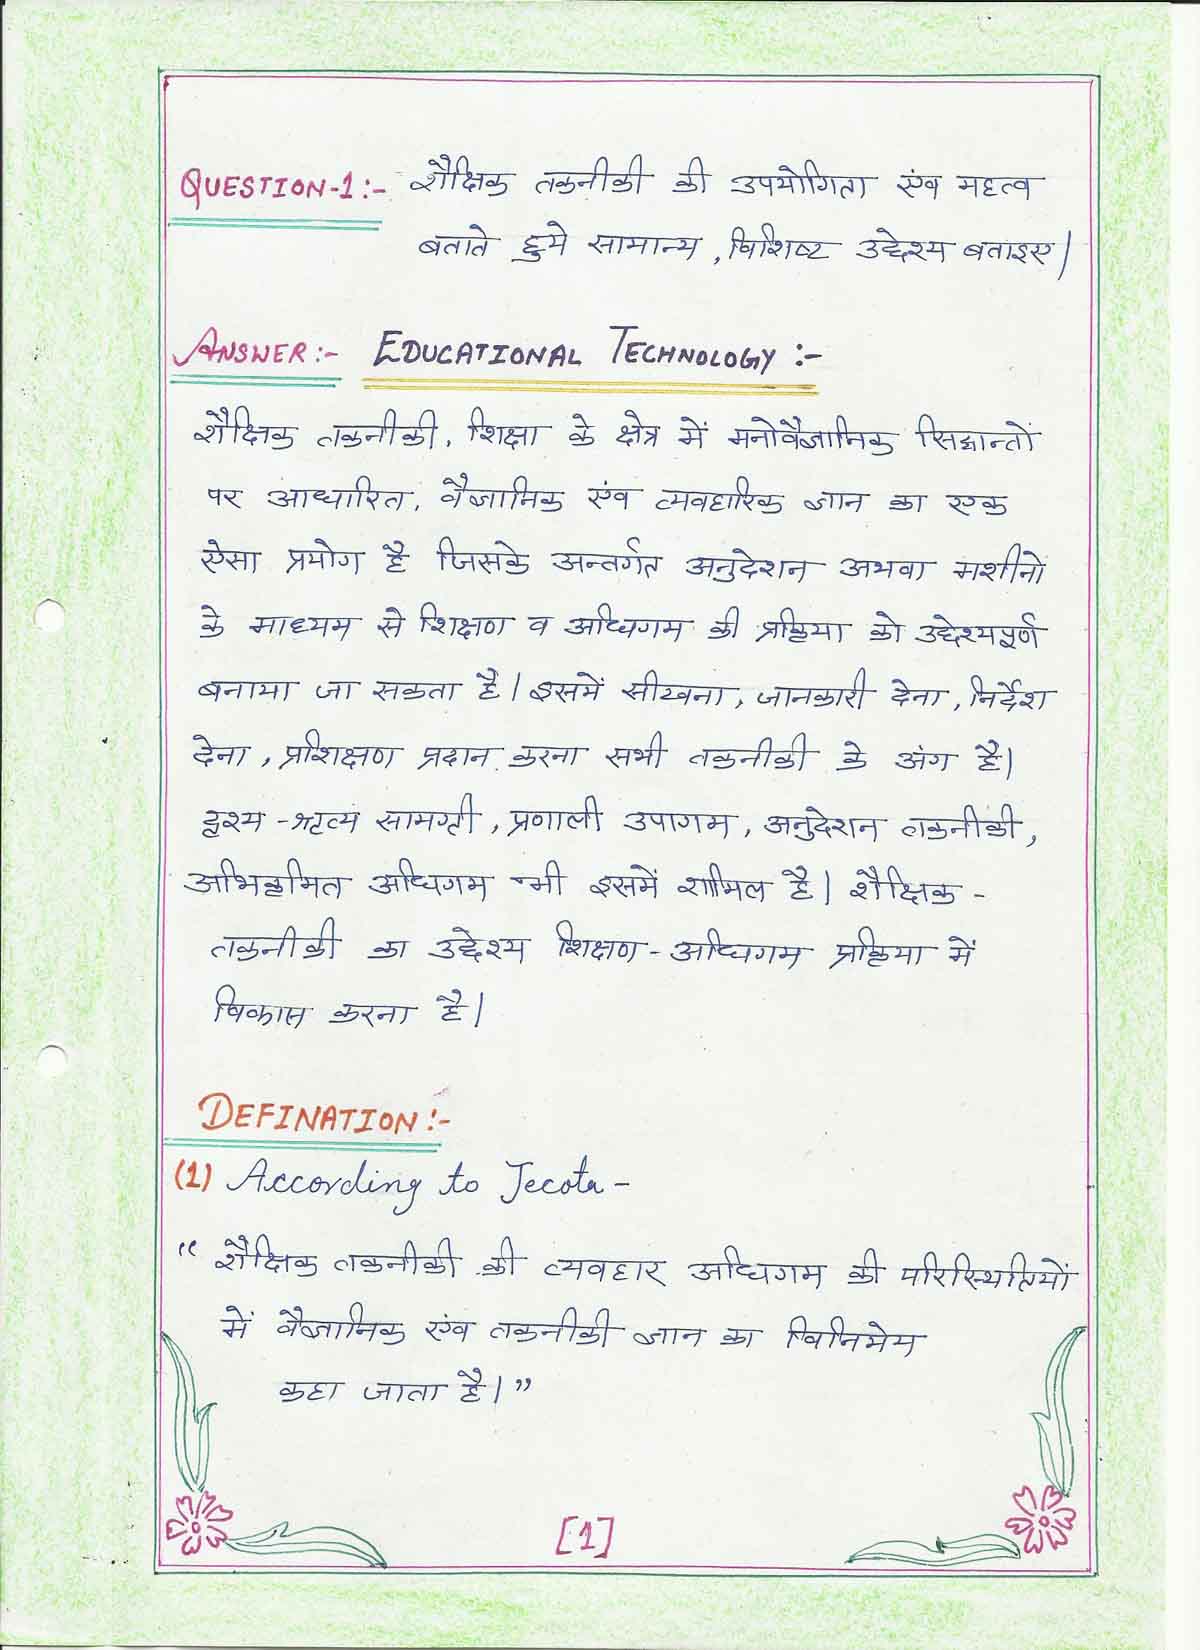 QUESTION-1:- शैक्षिक तकनीकी की उपयोगिता एंव महत्व
बताते हुये सामान्य, विशिष्ट उद्देश्य बताइए।
ANSWER:- EDUCATIONAL TECHNOLOGY:-
शैक्षिक तकनीकी, शिक्षा के क्षेत्र में मनोवैज्ञानिक सिद्धान्तों
पर आधारित, वैज्ञानिक एंव व्यवहारिक ज्ञान का एक
ऐसा प्रयोग है जिसके अन्तर्गत अनुदेशन अथवा मशीनो
के माध्यम से शिक्षण व अधिगम की प्रक्रिया को उद्देश्यपूर्ण
बनाया जा सकता है। इसमें सीखना, जानकारी देना, निर्देश
देना, प्रशिक्षण प्रदान करना सभी तकनीकी के अंग है।
दृश्य-श्रृव्य सामग्री, प्रणाली उपागम, अनुदेशन तकनीकी,
अभिक्रमित अधिगम भी इसमें शामिल है। शैक्षिक-
तकनीकी का उद्देश्य शिक्षण-अधिगम प्रक्रिया में
विकास करना है।
DEFINATION:-
(1) According to Jecota-
“शैक्षिक तकनीकी की व्यवहार अधिगम की परिस्थितियों
में वैज्ञानिक एंव तकनीकी ज्ञान का विनिमेय
कहा जाता है।”
[1]